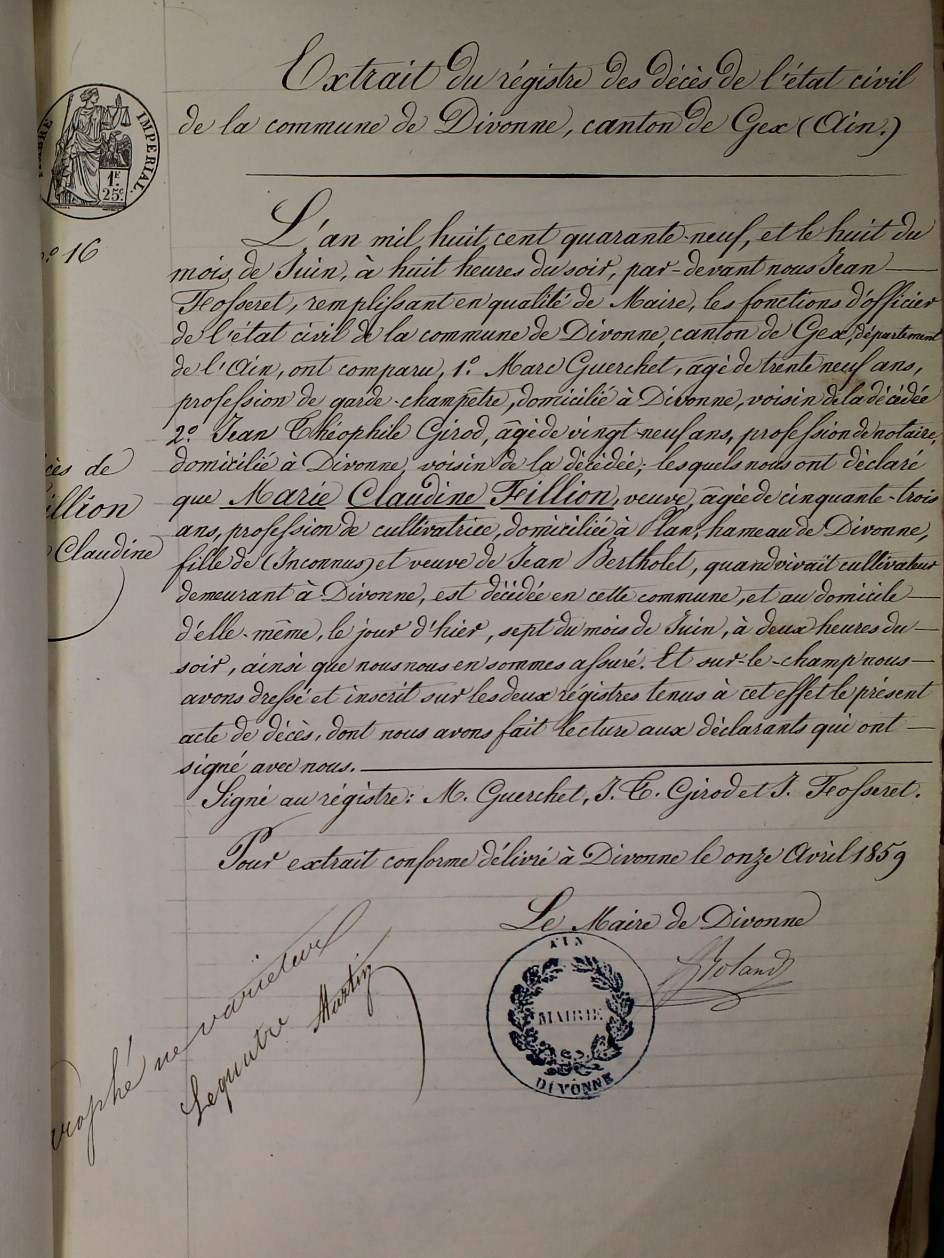 Extrait du régistre des décès de l'état civil
de la commune de Divonne, canton de Gex (Ain.)
IMPERIAL.
1F.
25c.
no. 16
L'an mil huit cent quarante-neuf, et le huit du
mois de Juin, à huit heures du soir, par-devant nous Jean
Fosseret, remplissant en qualité de Maire, les fonctions d'officier
de l'état civil de la commune de Divonne, canton de Gex, département
de l'Ain, ont comparu, 1o. Marc Guerchet, âgé de trente neuf ans,
profession de garde-champêtre, domicilié à Divonne, voisin de la décédée
2o. Jean Théophile Girod, âgé de vingt-neuf ans, profession de notaire,
domicilié à Divonne, voisin de la décédée; lesquels nous ont déclaré
que Marie Claudine Feillion, veuve, âgée de cinquante-trois
ans, profession de cultivatrice, domiciliée à Plan, hameau de Divonne,
fille de (Inconnus) et veuve de Jean Bertholet, quand vivait cultivateur
demeurant à Divonne, est décédée en cette commune, et au domicile
d'elle-même, le jour d'hier, sept du mois de Juin, à deux heures du
soir, ainsi que nous nous en sommes assuré. Et sur-le-champ nous
avons dressé et inscrit sur les deux régistres tenus à cet effet le présent
acte de décès, dont nous avons fait lecture aux déclarants qui ont
signé avec nous.
cès de
illion
Claudine
Signé au régistre: M. Guerchet, J. T. Girod et J. Fosseret.
Pour extrait conforme délivré à Divonne le onze Avril 1859
Le Maire de Divonne
AIN
MAIRIE
DIVONNE
raphé ne varietur
Lequatre Martin